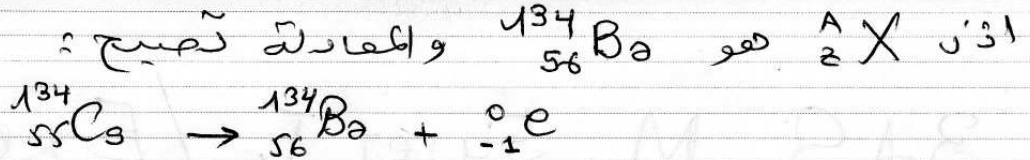 اذن ᴬ_Z X هو ¹³⁴₅₆Ba والمعادلة تصبح :
¹³⁴₅₅Cs → ¹³⁴₅₆Ba + ⁰₋₁e